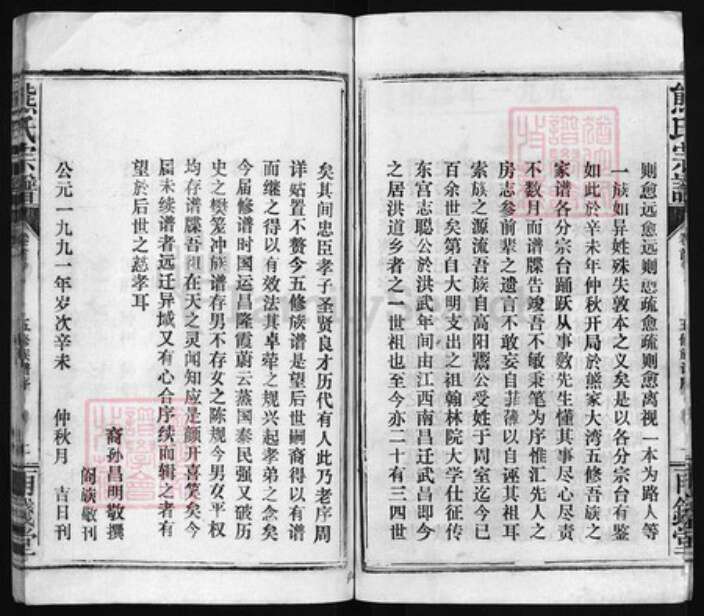 则愈远愈远则愈疏愈疏则愈离视一本为路人等
一族如异姓殊失敦本之义矣是以各分宗台有鉴
如此於辛未年仲秋开局於熊家大湾五修吾族之
家谱各分宗台踊跃从事数先生懂其事尽心尽责
不数月而谱牒告竣吾不敏秉笔为序惟汇先人之
房志参前辈之遗言不敢妄自菲薄以自诬其祖耳
索族之源流吾族自高阳鬻公受姓于周室迄今已
百余世矣第自大明支出之祖翰林院大学仕征传
东宫志聪公於洪武年间由江西南昌迁武昌即今
之居洪道乡者之一世祖也至今亦二十有三四世
矣其间忠臣孝子圣贤良才历代有人此乃老序周
详姑置不赘今五修族谱是望后世嗣裔得以有谱
而继之得以有效法其卓荦之规兴起孝弟之念矣
今届修谱时国运昌隆霞蔚云蒸国泰民强又破历
史之樊笼冲族谱存男不存女之陈规今男女平权
均存谱牒吾祖在天之灵闻知应是颜开喜笑矣今
届未续谱者远迁异域又有心合序续而辑之者有
望於后世之慈孝耳
裔孙昌明敬撰
阖族敬刊
公元一九九一年岁次辛未 仲秋月 吉日刊
熊氏宗谱
卷首
五修族谱序
熊氏宗谱
卷首
五修族谱序